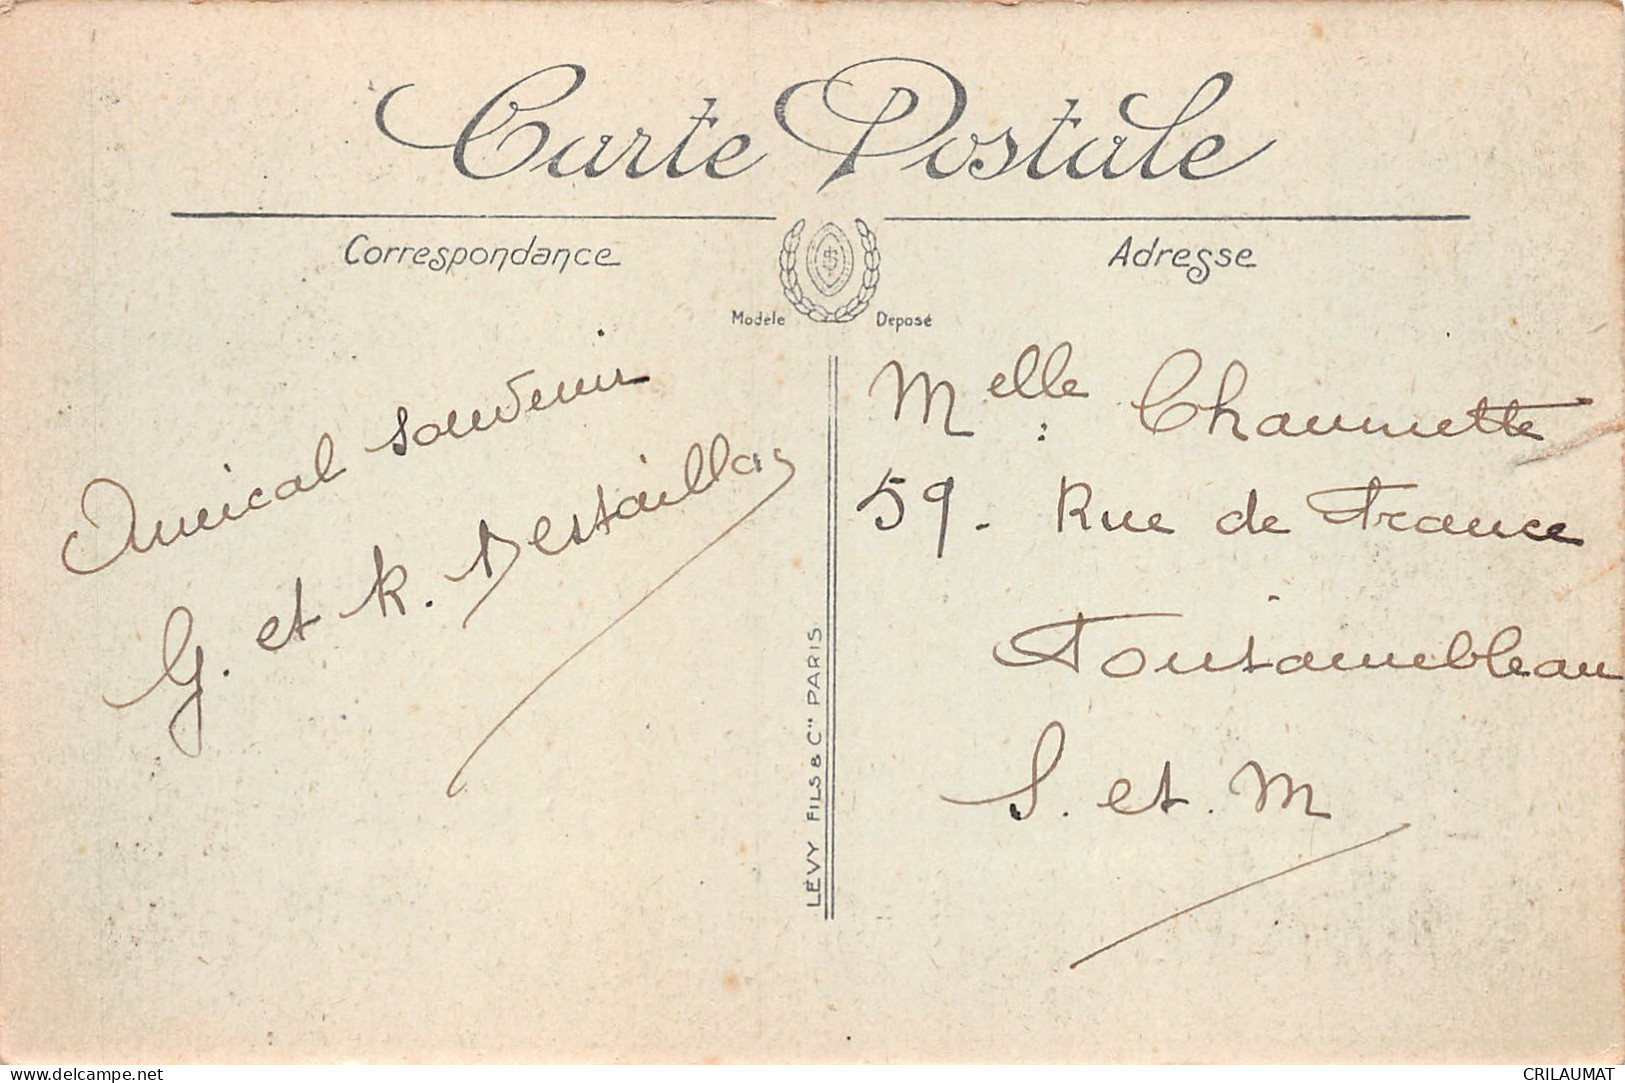 Carte Postale
Correspondance
Adresse
Modèle Déposé
Amical souvenir
G. et R. Destaillas
LÉVY FILS & Cie PARIS
Melle : Chaumette
59. Rue de France
Fontainebleau
S. et. M
www.delcampe.net
CRILAUMAT